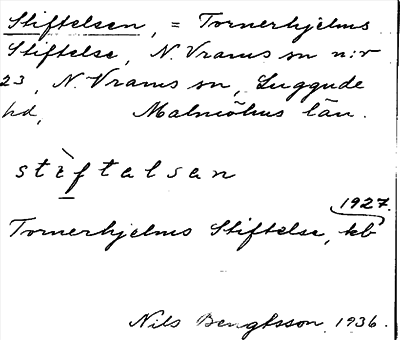 Stiftelsen, = Tornerhjelms
Stiftelse, N. Vrams sn n:r
23, N. Vrams sn, Luggude
hd, Malmöhus län.
stìftalsan
1927.
Tornerhjelms Stiftelse, kb
Nils Bengtsson 1936.